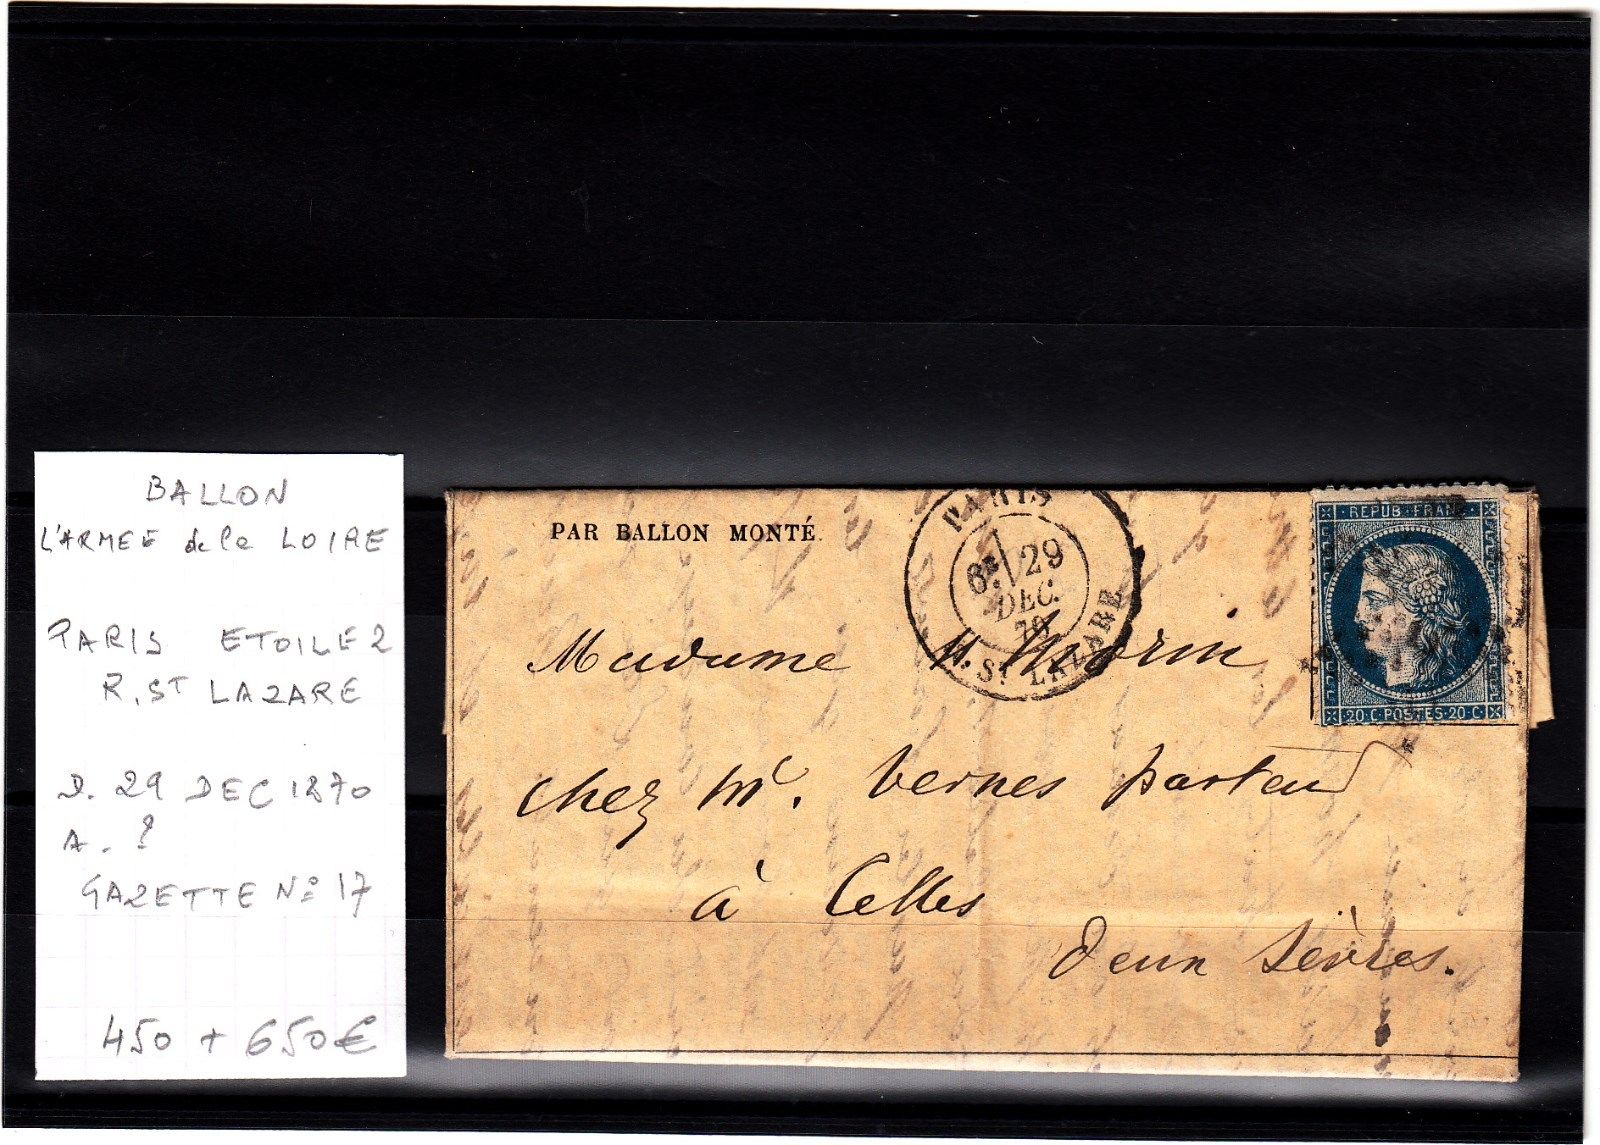 BALLON
L'ARMEE de la LOIRE
PARIS ETOILE 2
R. ST LAZARE
D. 29 DEC 1870
A. ?
GAZETTE No 17
450 + 650€
PAR BALLON MONTÉ.
PARIS
6E 29
DEC.
70
R. ST LAZARE
REPUB. FRANC.
20 C POSTES 20 C
Madame
chez Mr. Vernes pasteur
à Celles
Deux Sèvres.